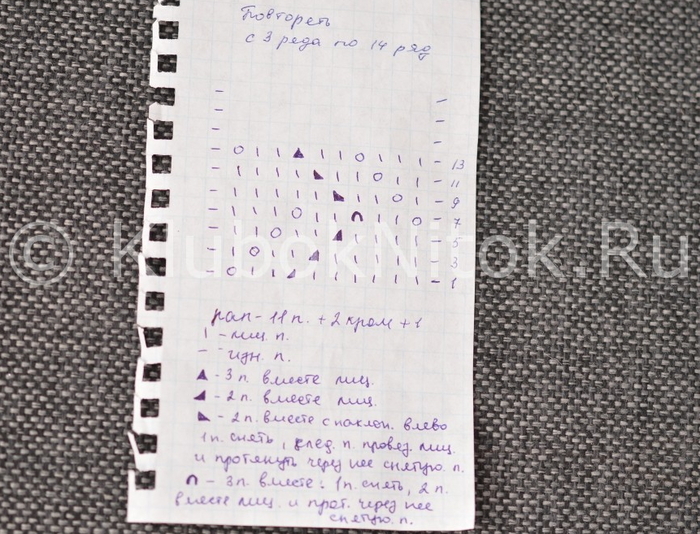 Повторить
с 3 ряда по 14 ряд
13
11
9
7
5
3
1
© KlubokNitok.Ru
рап - 11 п. + 2 кром + 1
| - лиц. п.
— - изн. п.
- 3 п. вместе лиц.
- 2 п. вместе лиц.
- 2 п. вместе с наклон. влево
1 п. снять, след. п. провяз. лиц.
и протянуть через нее снятую п.
∩ - 3 п. вместе: 1 п. снять, 2 п.
вместе лиц. и прот. через нее
снятую п.